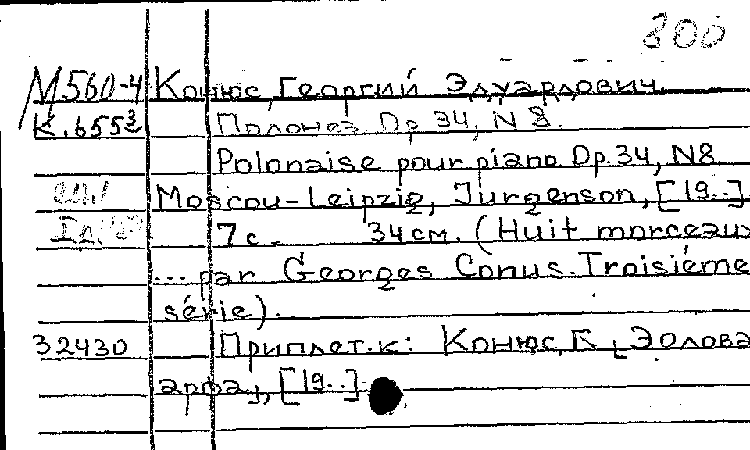 800
М560-4 Конюс, Георгий Эдуардович.
К.655з Полонез Op 34, N 8.
Polonaise pour piano Op. 34, N8
Moscou-Leipzig, Jurgenson, [19..]
7с. 34см. (Huit morceaux
... par Georges Conus. Troisiéme
série).
32430 Приплет. к: Конюс, Г. [Эолова
арфа], [19..]